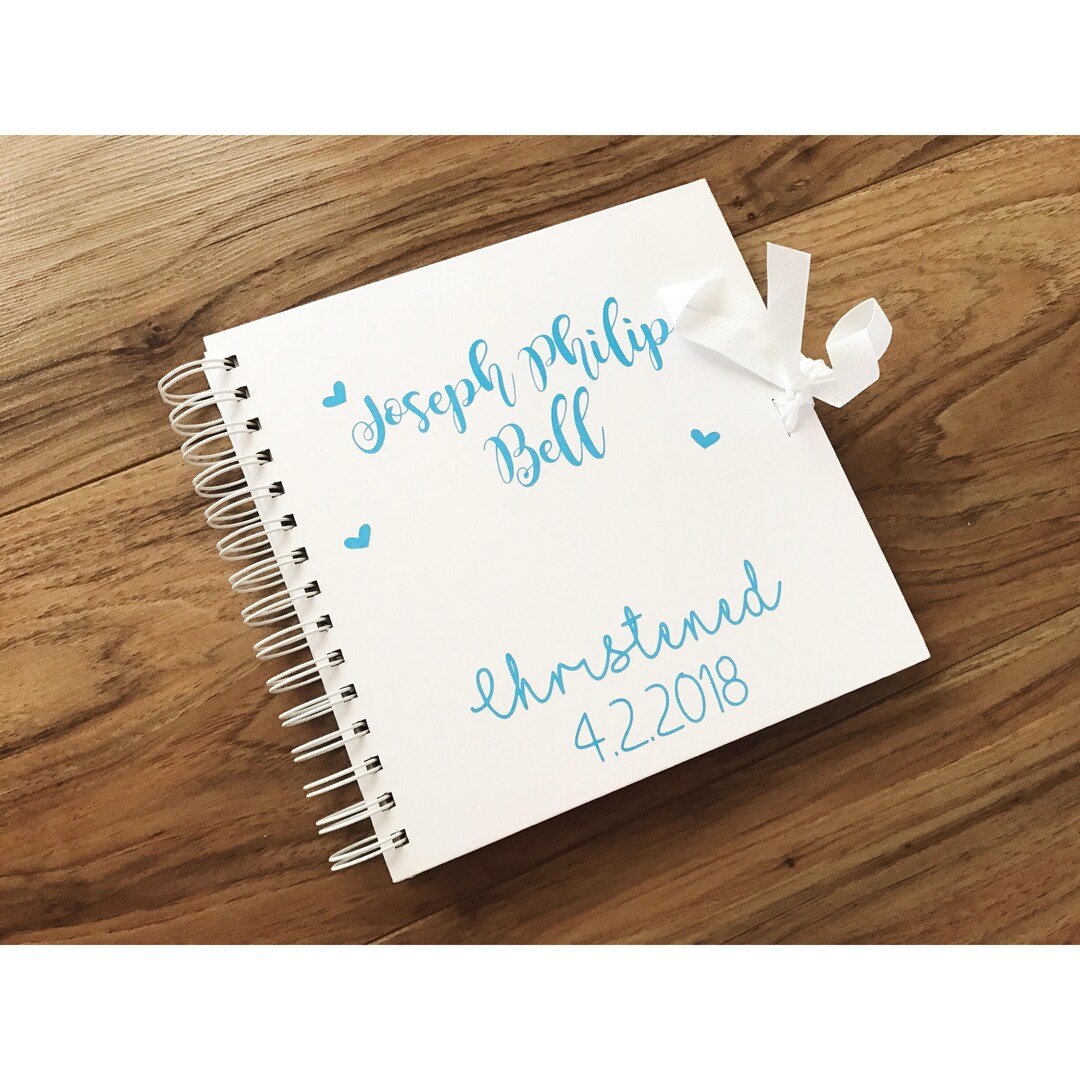 Joseph Philip
Bell
Christened
4.2.2018